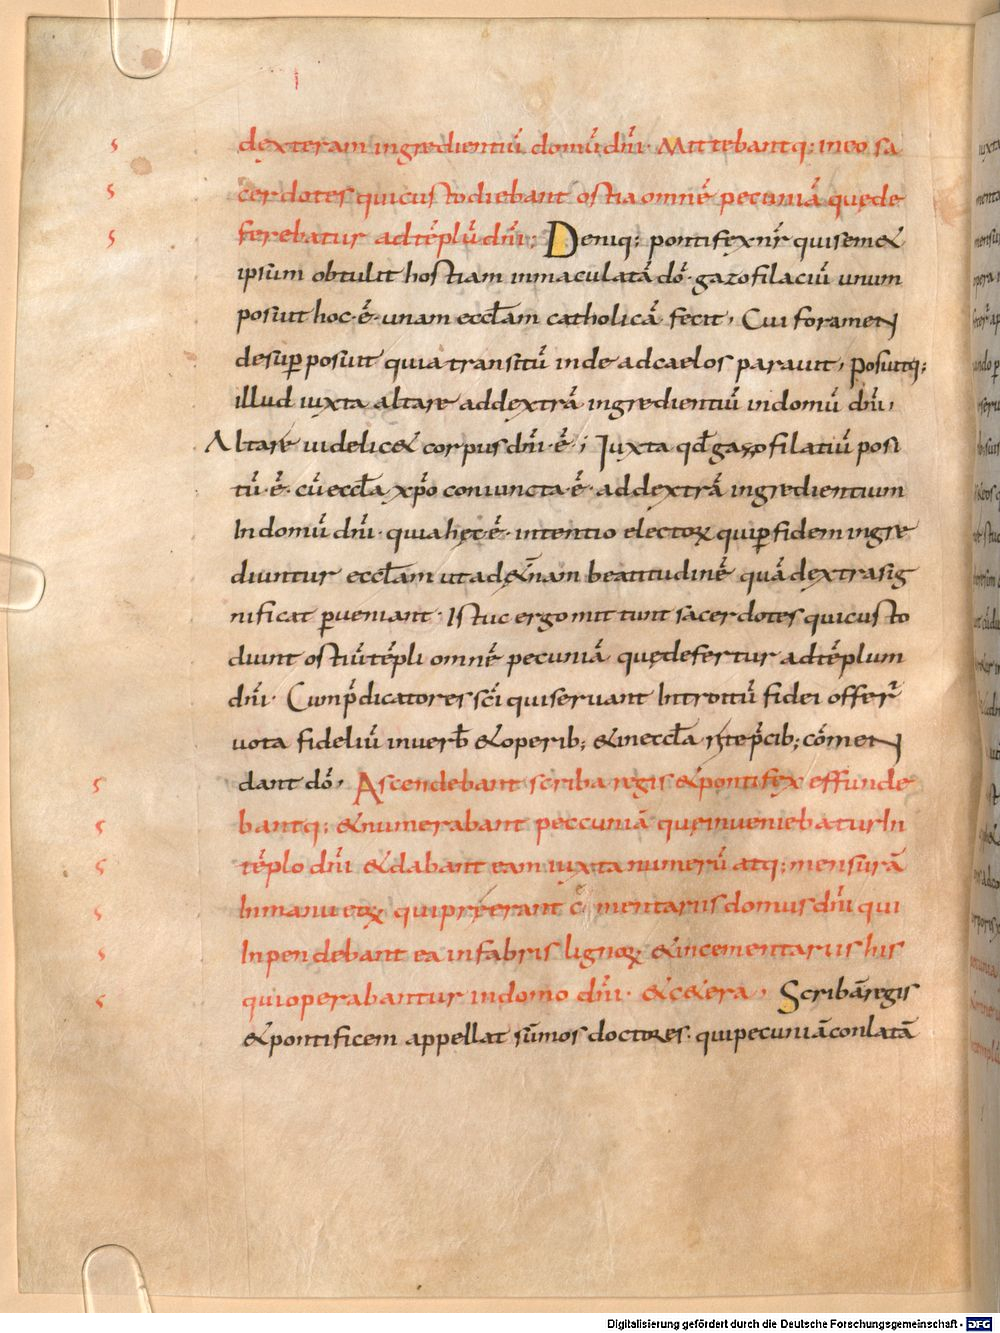 dexteram ingredientiū domū dn̄i· Mittebantq; in eo sa
cerdotes qui custodiebant ostia omnē pecuniā quę de
ferebatur ad tēplū dn̄i; Deniq; pontifex nr̄ qui semet
ipsum obtulit hostiam inmaculatā dō· gazofilaciū unum
posuit hoc·ē· unam eccl̄am catholicā fecit, Cui foramen
desup posuit quia transitū inde ad caelos parauit, Posuitq;
illud iuxta altare ad dextrā ingredientiū in domū dn̄i,
Altare uidelic& corpus dn̄i·ē·; Iuxta qd̄ gazofilatiū posi
tū·ē· cū eccl̄a xp̄o coniuncta·ē· ad dextrā ingredientium
In domū dn̄i· quia hęc·ē· intentio electoꝝ qui ꝑ fidem ingre
diuntur eccl̄am ut ad &̄nam beatitudinē quā dextra sig
nificat ꝑueniant· Istuc ergo mittunt sacerdotes qui custo
diunt ostiū tēpli omnē pecuniā quę defertur ad tēplum
dn̄i· Cum p̄dicatores sc̄i qui seruant Introitū fidei offer̄
uota fideliū in uerb̄ & operib; & in eccl̄a n̄te p̄cib; cōmen
dant dō, Ascendebant scriba regis & pontifex effunde
bantq; & numerabant peccuniā quę inueniebatur In
tēplo dn̄i & dabant eam iuxta numerū atq; mensurā
In manu eoꝝ qui pręerant cementariis domus dn̄i qui
Inpendebant ea in fabris lignoꝝ & in cementariis his
qui operabantur in domo dn̄i· & c&era, Scribā regis
& pontificem appellat sūmos doctores· qui pecuniā conlatā
Digitalisierung gefördert durch die Deutsche Forschungsgemeinschaft - DFG